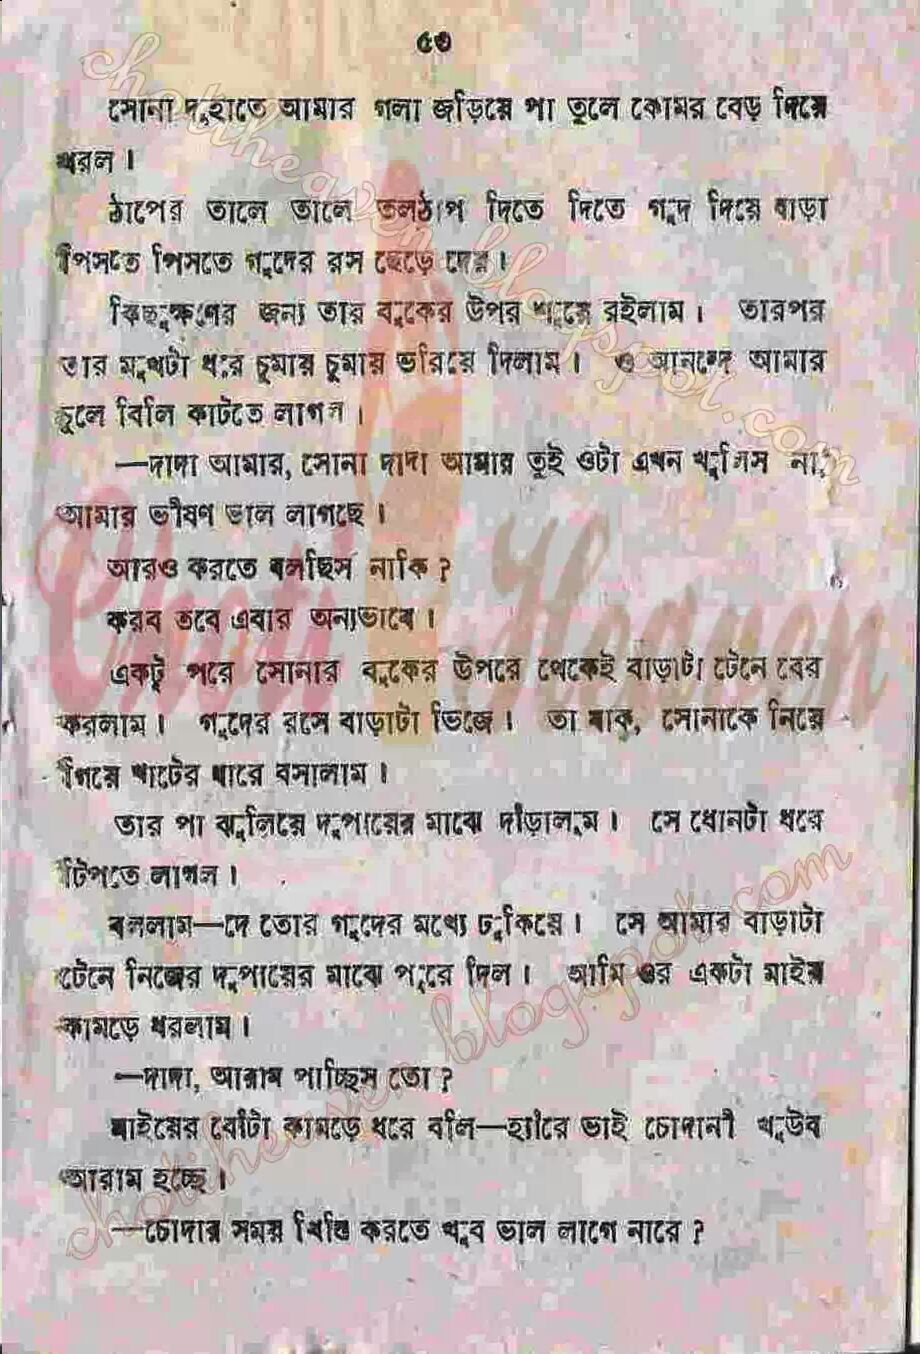 ৫৩
সোনা দুহাতে আমার গলা জড়িয়ে পা তুলে কোমর বেড় দিয়ে
ধরল ।
ঠাপের তালে তালে তলঠাপ দিতে দিতে গুদ দিয়ে বাড়া
পিসতে পিসতে গুদের রস ছেড়ে দেয় ।
কিছুক্ষণের জন্য তার বুকের উপর শুয়ে রইলাম । তারপর
তার মুখটা ধরে চুমায় চুমায় ভরিয়ে দিলাম । ও আনন্দে আমার
চুলে বিলি কাটতে লাগল ।
—দাদা আমার, সোনা দাদা আমার তুই ওটা এখন খুলিস না,
আমার ভীষণ ভাল লাগছে ।
আরও করতে বলছিস নাকি ?
করব তবে এবার অন্যভাবে ।
একটু পরে সোনার বুকের উপরে থেকেই বাড়াটা টেনে বের
করলাম । গুদের রসে বাড়াটা ভিজে । তা যাক, সোনাকে নিয়ে
গিয়ে খাটের ধারে বসালাম ।
তার পা ঝুলিয়ে দুপায়ের মাঝে দাঁড়ালুম । সে ধোনটা ধরে
টিপতে লাগল ।
বললাম—দে তোর গুদের মধ্যে ঢুকিয়ে । সে আমার বাড়াটা
টেনে নিজের দুপায়ের মাঝে পুরে দিল । আমি ওর একটা মাইয়
কামড়ে ধরলাম ।
—দাদা, আরাম পাচ্ছিস তো ?
মাইয়ের বোঁটা কামড়ে ধরে বলি—হ্যাঁরে ভাই চোদানী খুউব
আরাম হচ্ছে ।
—চোদার সময় খিস্তি করতে খুব ভাল লাগে নারে ?
Choti Heaven
chotiheaven.blogspot.com
chotiheaven.blogspot.com